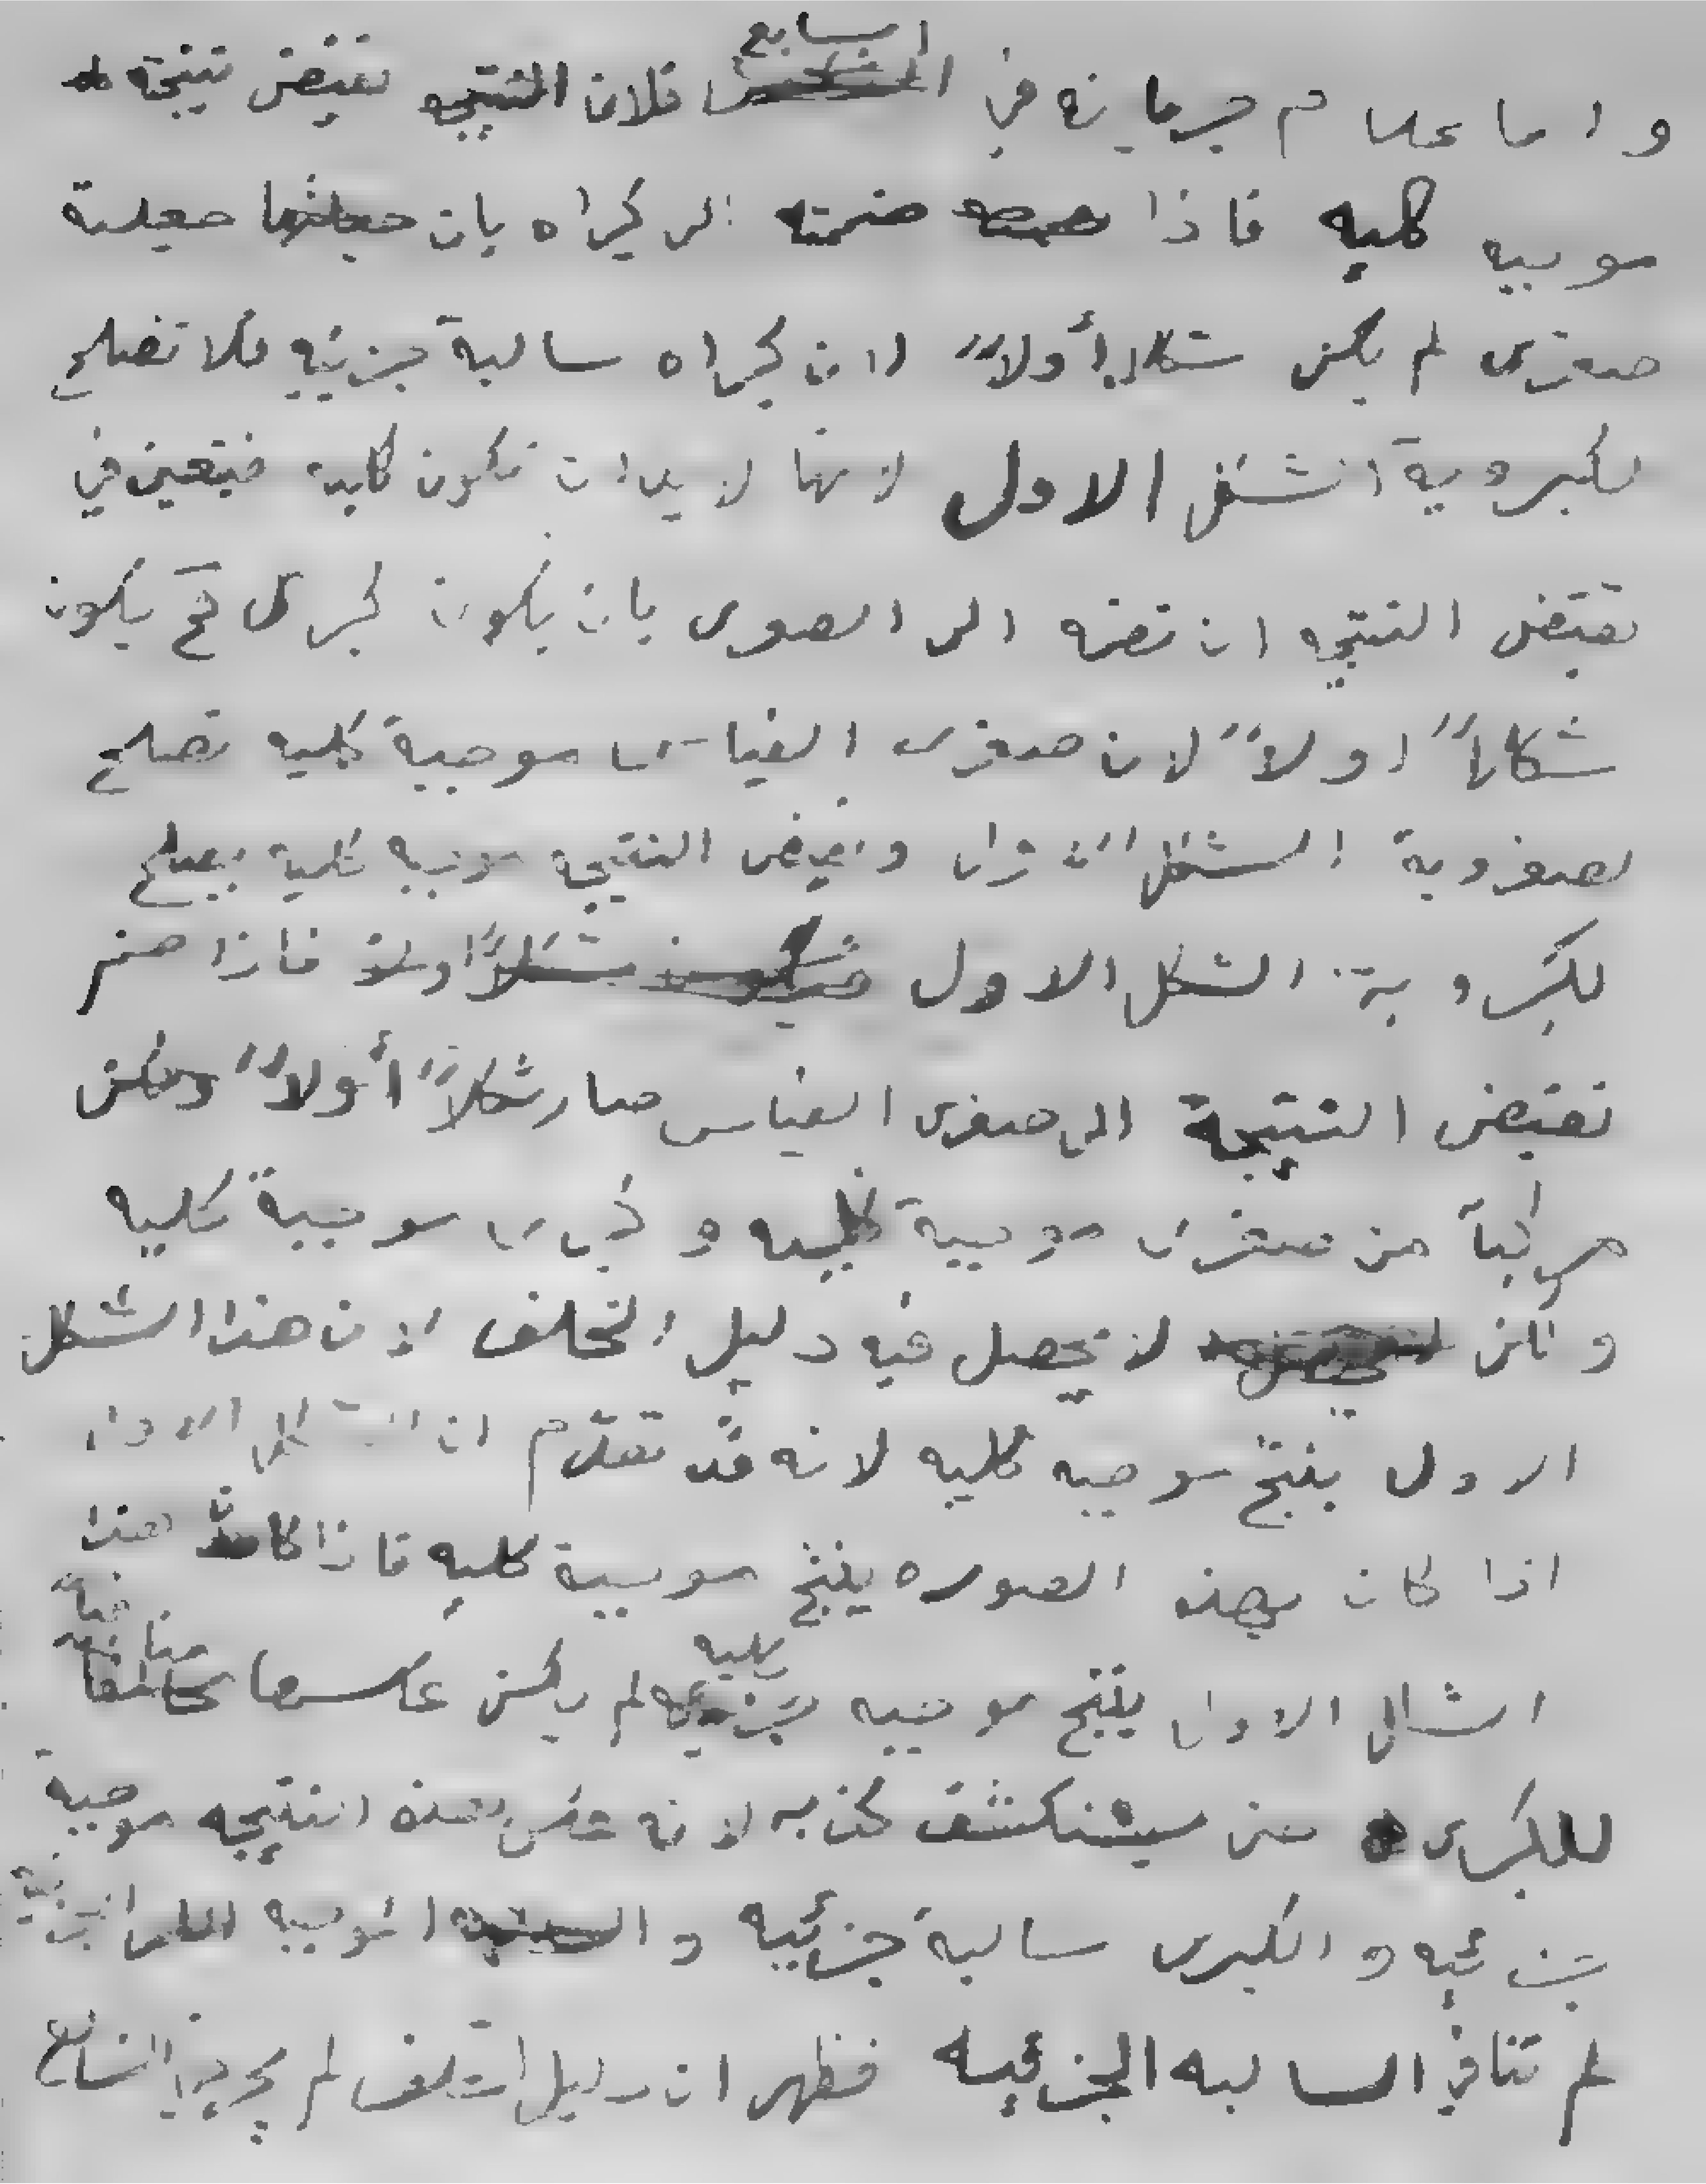 واما عدم جريانه في السابع فلان النتيجه نقيض نتيجته
موجبه كليه فاذا ضممته الى كبراه بان جعلته
صغرى لم يكن شكلاً أولاً لان كبراه سالبة جزئيه فلا تصلح
لكبروية الشكل الاول لانها لابد ان تكون كليه فيتعين في
نقيض النتيجه ان تضمه الى الصغرى بان يكون كبرى فح يكون
شكلاً اولاً لان صغرى القياس موجبة كليه تصلح
لصغروية الشكل الاول ونقيض النتيجه موجبه كلية يصلح
لكبروية الشكل الاول فاذا ضم
نقيض النتيجة الى صغرى القياس صار شكلاً أولاً ولكن
مركباً من صغرى موجبة كليه وكبرى موجبة كليه
ولكن لا يحصل فيه دليل الخلف لان هذا الشكل
الاول ينتج موجبه كليه لانه قد تقدم ان الشكل الاول
اذا كان بهذه الصوره ينتج موجبة كليه فاذا كان هذا
الشكل الاول ينتج موجبه كليه لم يكن عكسها منافياً
للكبرى حتى ينكشف كذبه لانه عكس هذه النتيجه موجبة
جزئيه والكبرى سالبة جزئيه والموجبه الجزئية
لم تنافي السالبه الجزئيه فظهر ان دليل الخلف لم يجر في السابع